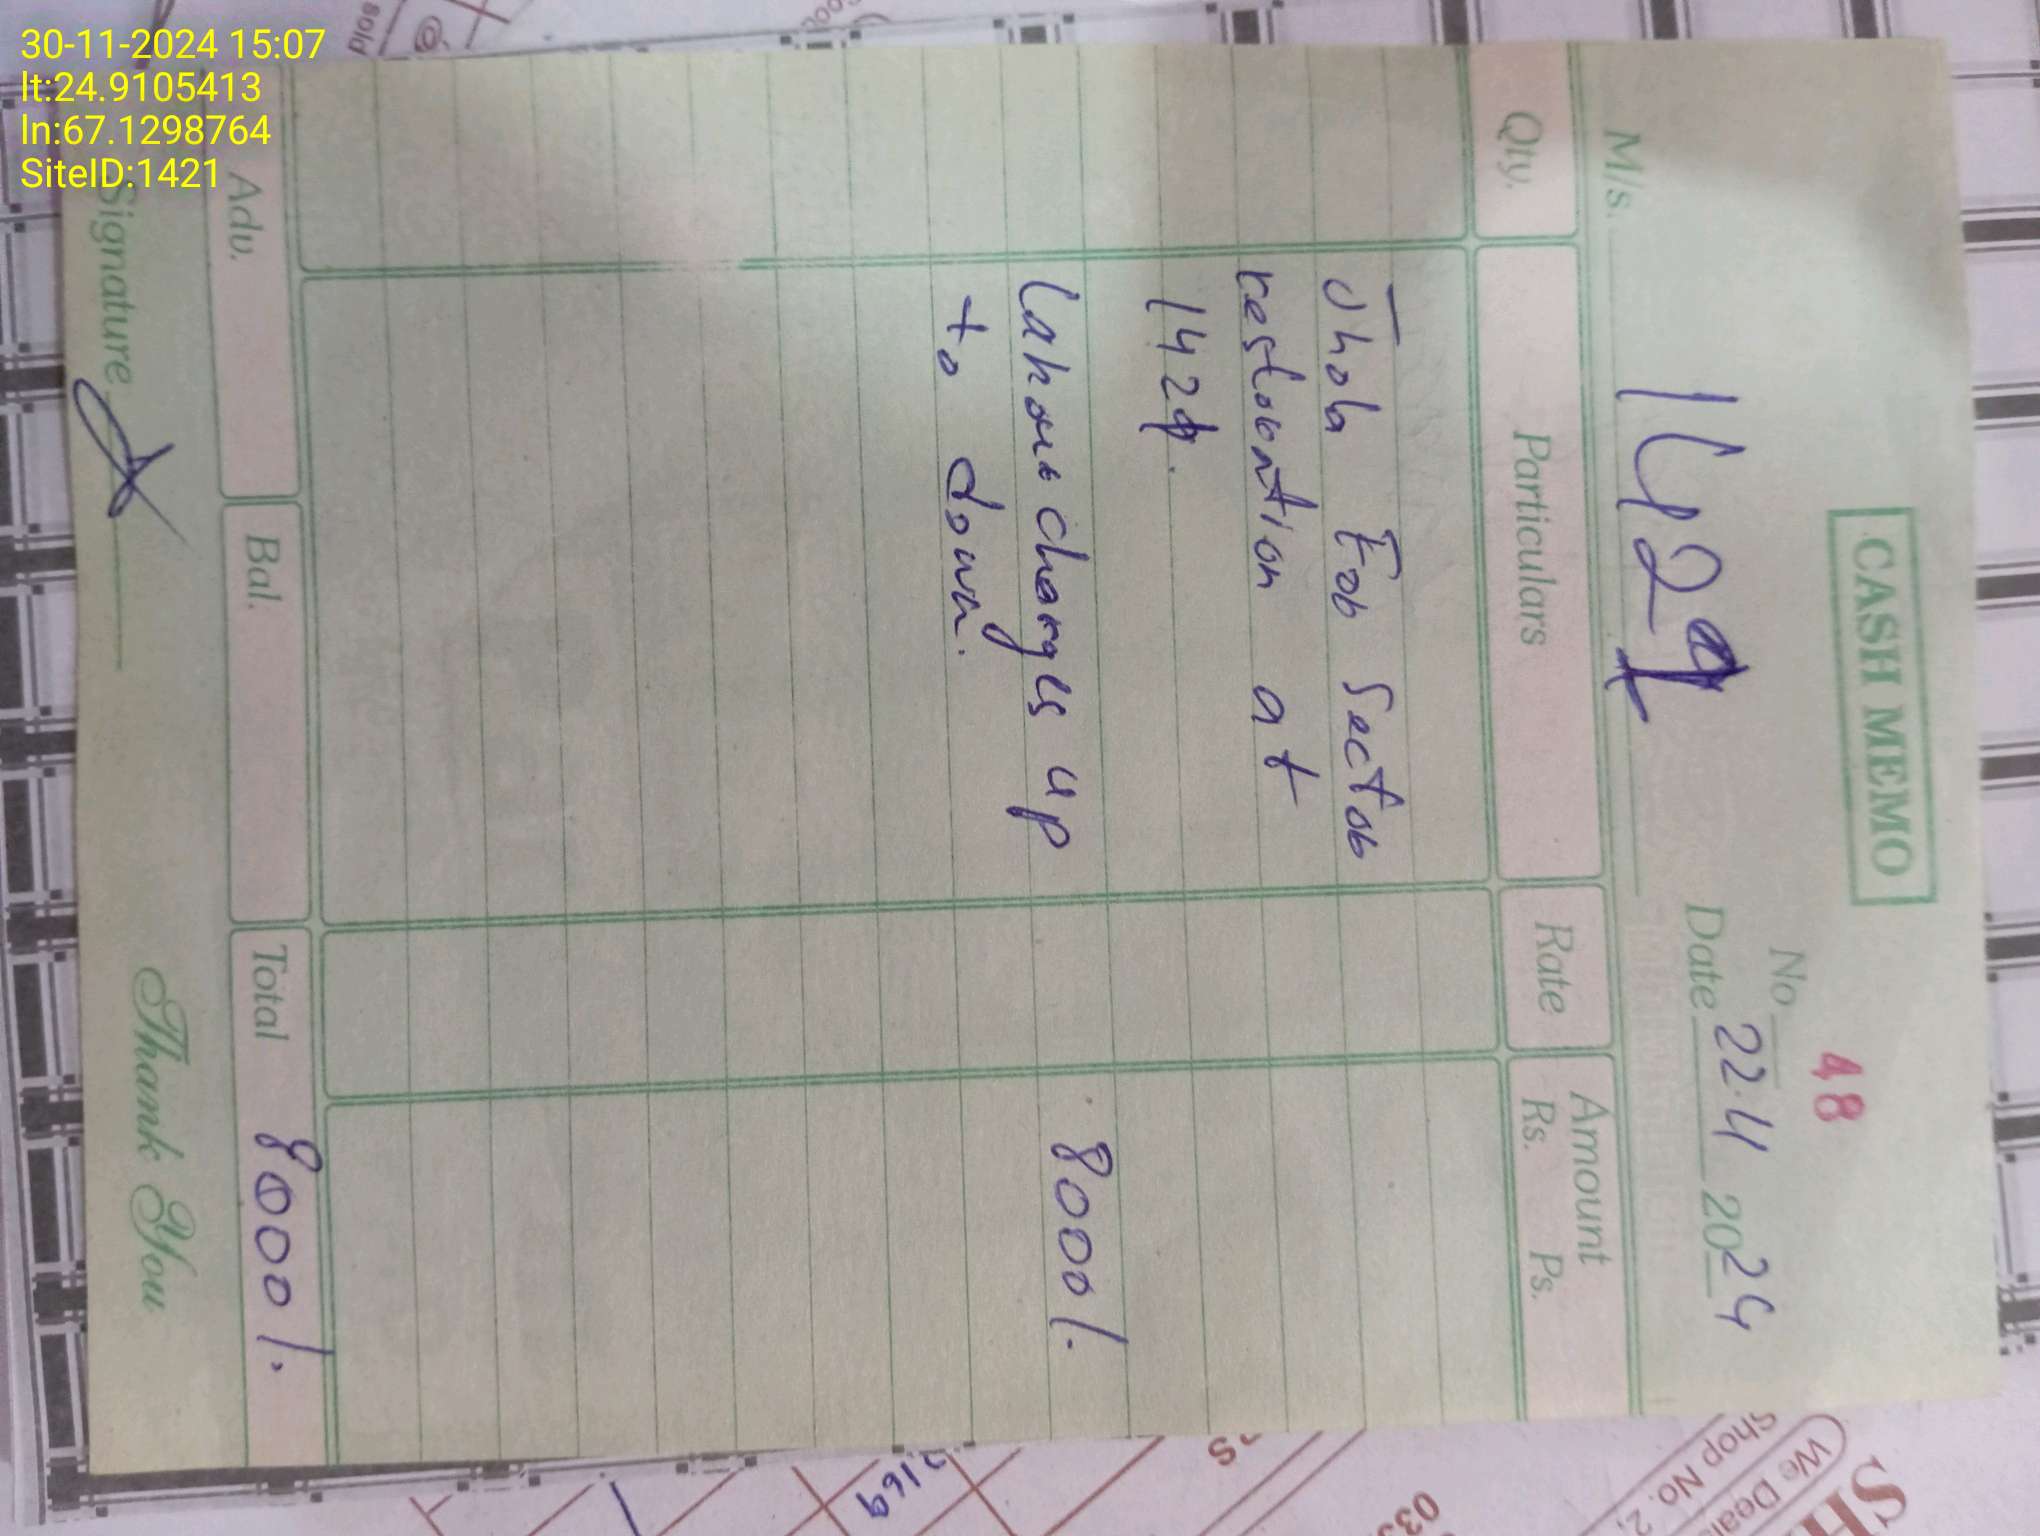 30-11-2024 15:07
lt:24.9105413
ln:67.1298764
SiteID:1421
CASH MEMO
No. 48
Date 22.11 2024
M/s. 1429
Qty. Particulars Rate Amount
Rs. Ps.
Jhola For Sector
restoration at
1421.
Labour charges up 8000/.
to down.
Adv. Bal. Total 8000/.
Signature
Thank You
sold
2169
033
SH
We Deal
Shop No. 2,